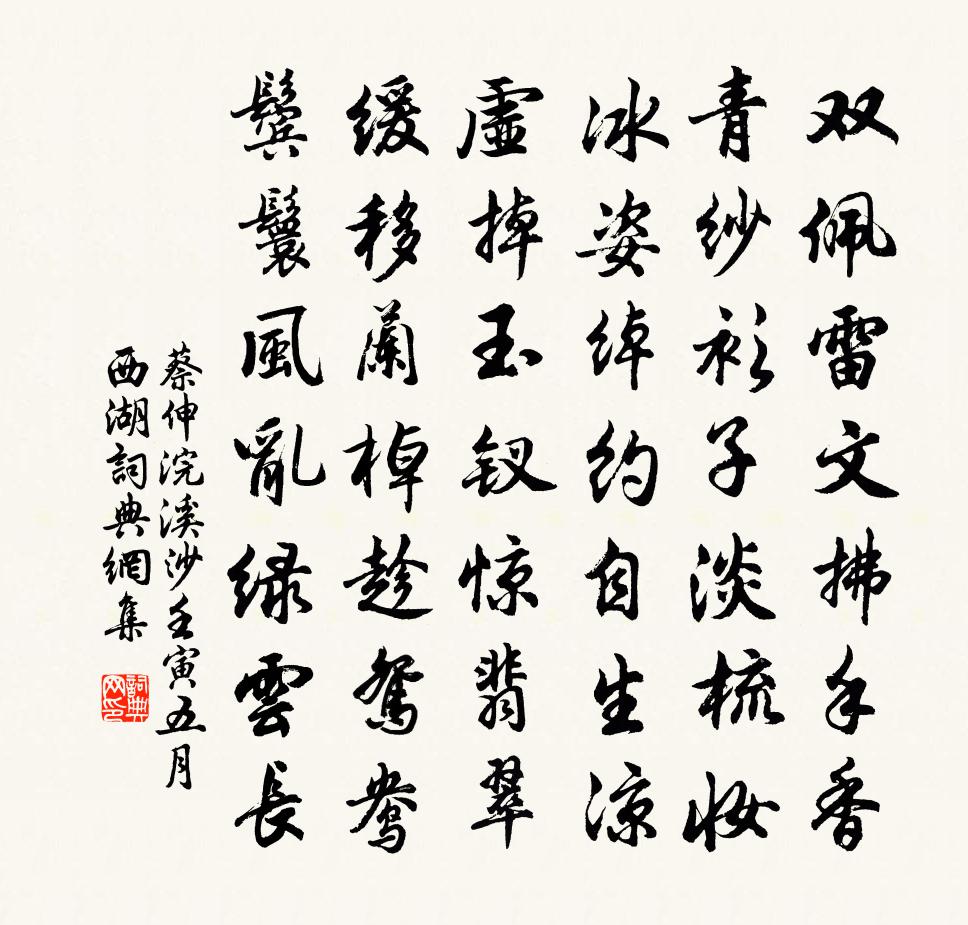 双佩雷文拂手香
青纱衫子淡梳妆
冰姿绰约自生凉
虚掉玉钗惊翡翠
缓移兰棹趁鸳鸯
鬓鬟風亂绿雲長
蔡伸浣溪沙壬寅五月
西湖詞典網集
詞典网印